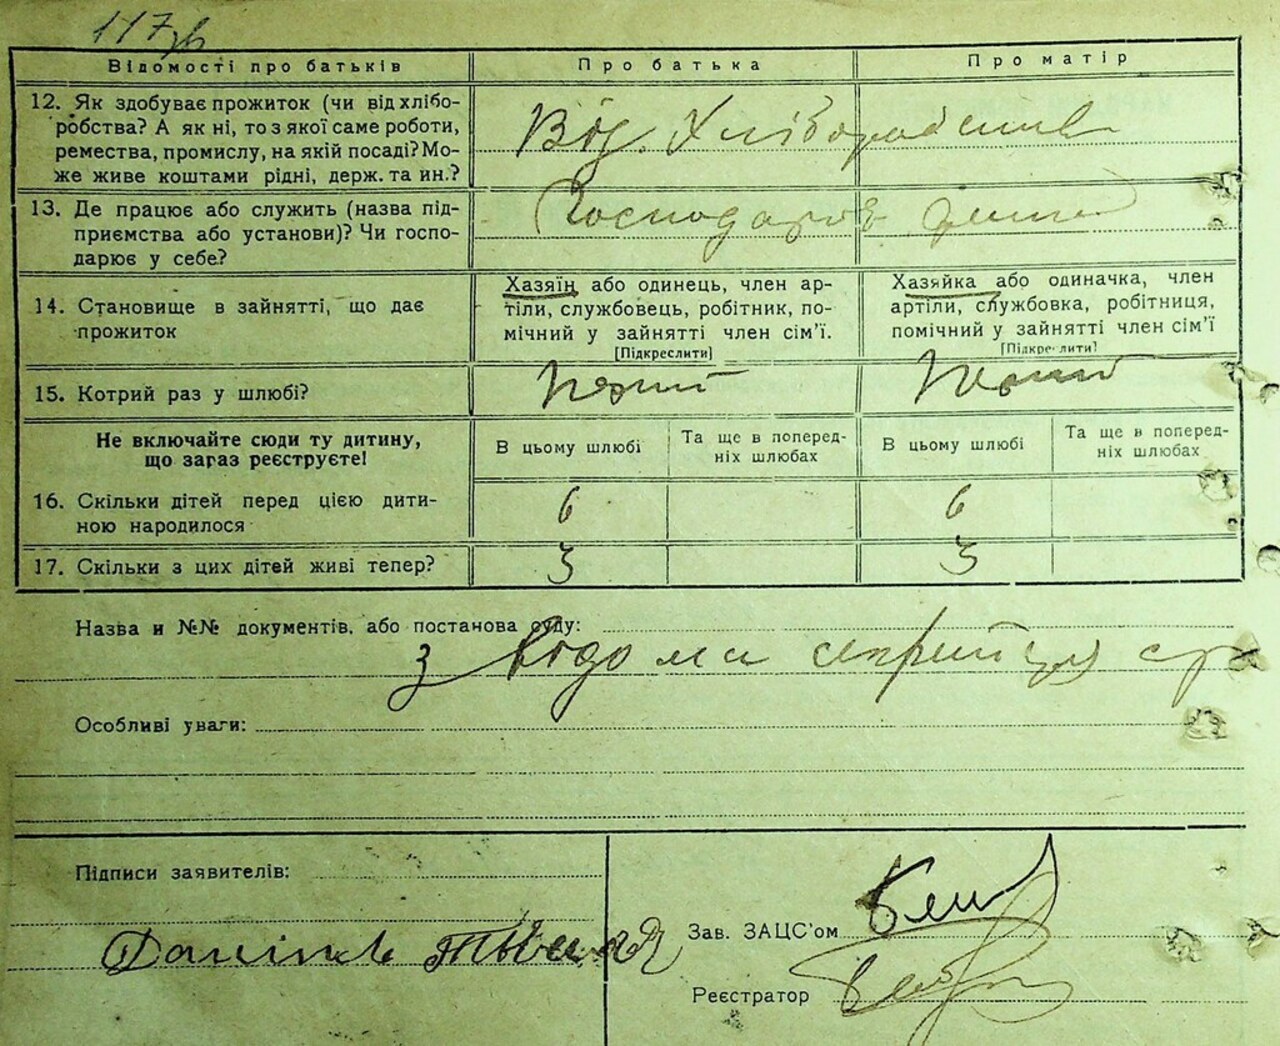 117зв
Відомості про батьків
Про батька
Про матір
12. Як здобуває прожиток (чи від хлібо-
робства? А як ні, то з якої саме роботи,
ремества, промислу, на якій посаді? Мо-
же живе коштами рідні, держ. та ин.?
Від. Хліборобства
13. Де працює або служить (назва під-
приємства або установи)? Чи госпо-
дарює у себе?
Господарстві
14. Становище в зайнятті, що дає
прожиток
Хазяїн або одинець, член ар-
тіли, службовець, робітник, по-
мічний у зайнятті член сім'ї.
[Підкреслити]
Хазяйка або одиначка, член
артіли, службовка, робітниця,
помічний у зайнятті член сім'ї
[Підкреслити]
15. Котрий раз у шлюбі?
Не включайте сюди ту дитину,
що зараз реєструєте!
В цьому шлюбі
Та ще в поперед-
ніх шлюбах
В цьому шлюбі
Та ще в поперед-
ніх шлюбах
16. Скільки дітей перед цією дити-
ною народилося
6
6
17. Скільки з цих дітей живі тепер?
3
3
Назва и №№ документів, або постанова суду:
з відома
Особливі уваги:
Підписи заявителів:
Зав. ЗАЦС'ом
Реєстратор